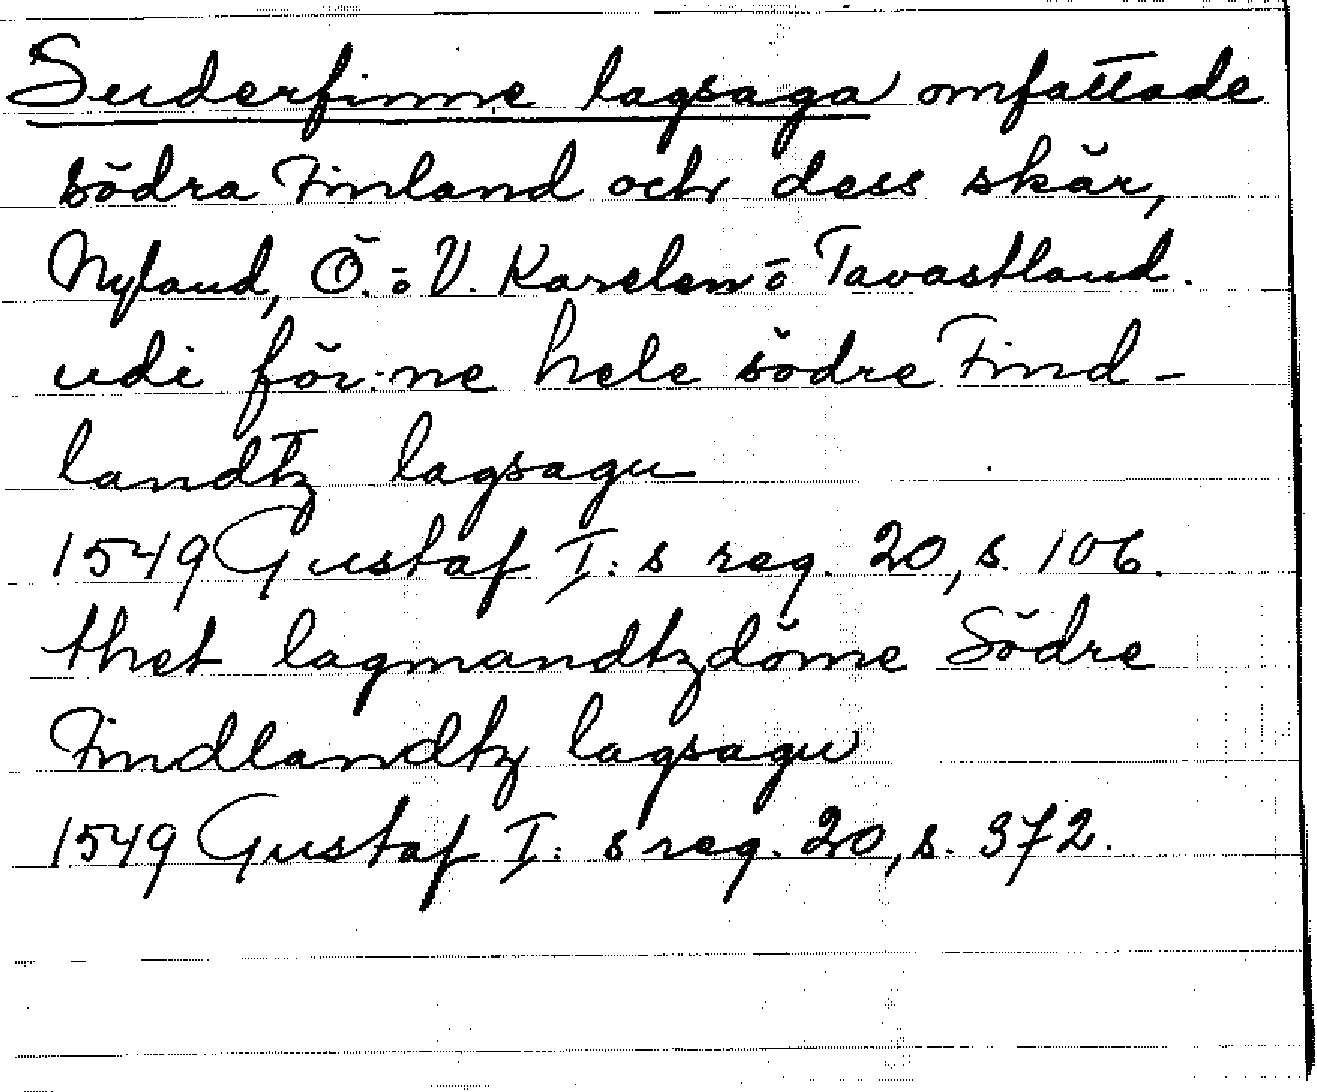 Suderfinne lagsaga omfattade
södra Finland och dess skär,
Nyland, Ö. o V. Karelen o Tavastland.
udi för:ne hele södre Find-
landtz lagsagu
1549 Gustaf I:s reg. 20, s. 106.
thet lagmandtzdöme Södre
Findlandtz lagsagu
1549 Gustaf I:s reg. 20, s. 372.